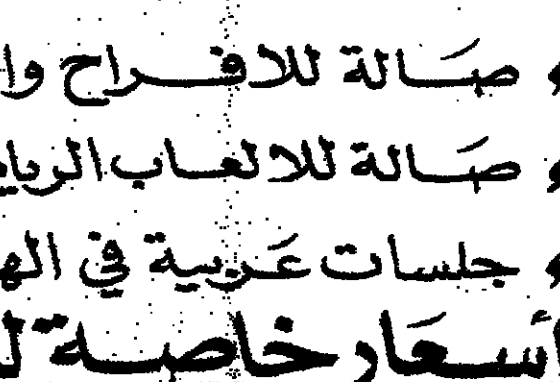 صالة للافراح وا
صالة للالعاب الريا
جلسات عربية في اله
أسعار خاصة ل